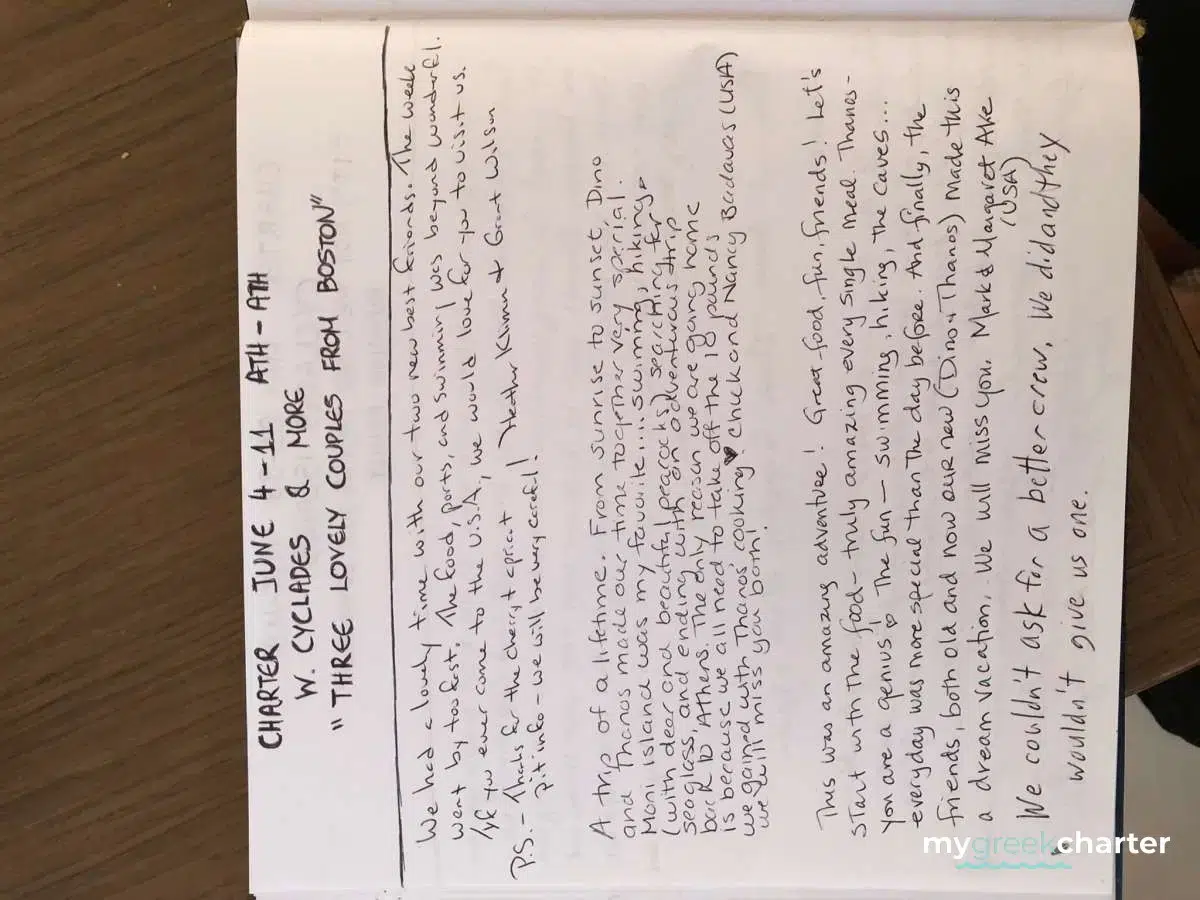 CHARTER JUNE 4-11 ATH-ATH
W. CYCLADES & MORE
"THREE LOVELY COUPLES FROM BOSTON"
We had a lovely time with our two new best friends. The week
went by too fast. The food, ports, and swimming was beyond wonderful.
If you ever come to the U.S.A, we would love for you to visit us.
P.S. - Thanks for the cherry + apricot Heather Kimm + Grant Wilson
pit info - we will be very careful!
A trip of a lifetime. From sunrise to sunset, Dino
and Thanos made our time together very special.
Moni island was my favorite.....swimming, hiking
(with deer and beautiful peacocks) searching for
seaglass, and ending with an adventurous trip
back to Athens. The only reason we are going home
is because we all need to take off the 18 pounds
we gained with Thanos cooking! Chuck and Nancy Badavas (USA)
we will miss you both!
This was an amazing adventure! Great food, fun, friends! Let's
start with the food - truly amazing every single meal. Thanos -
you are a genius! The fun - swimming, hiking, the caves...
everyday was more special than the day before. And finally, the
friends, both old and now our new (Dino + Thanos) made this
a dream vacation. We will miss you. Mark & Margaret Ake
(USA)
We couldn't ask for a better crew, We did and they
wouldn't give us one.
mygreekcharter